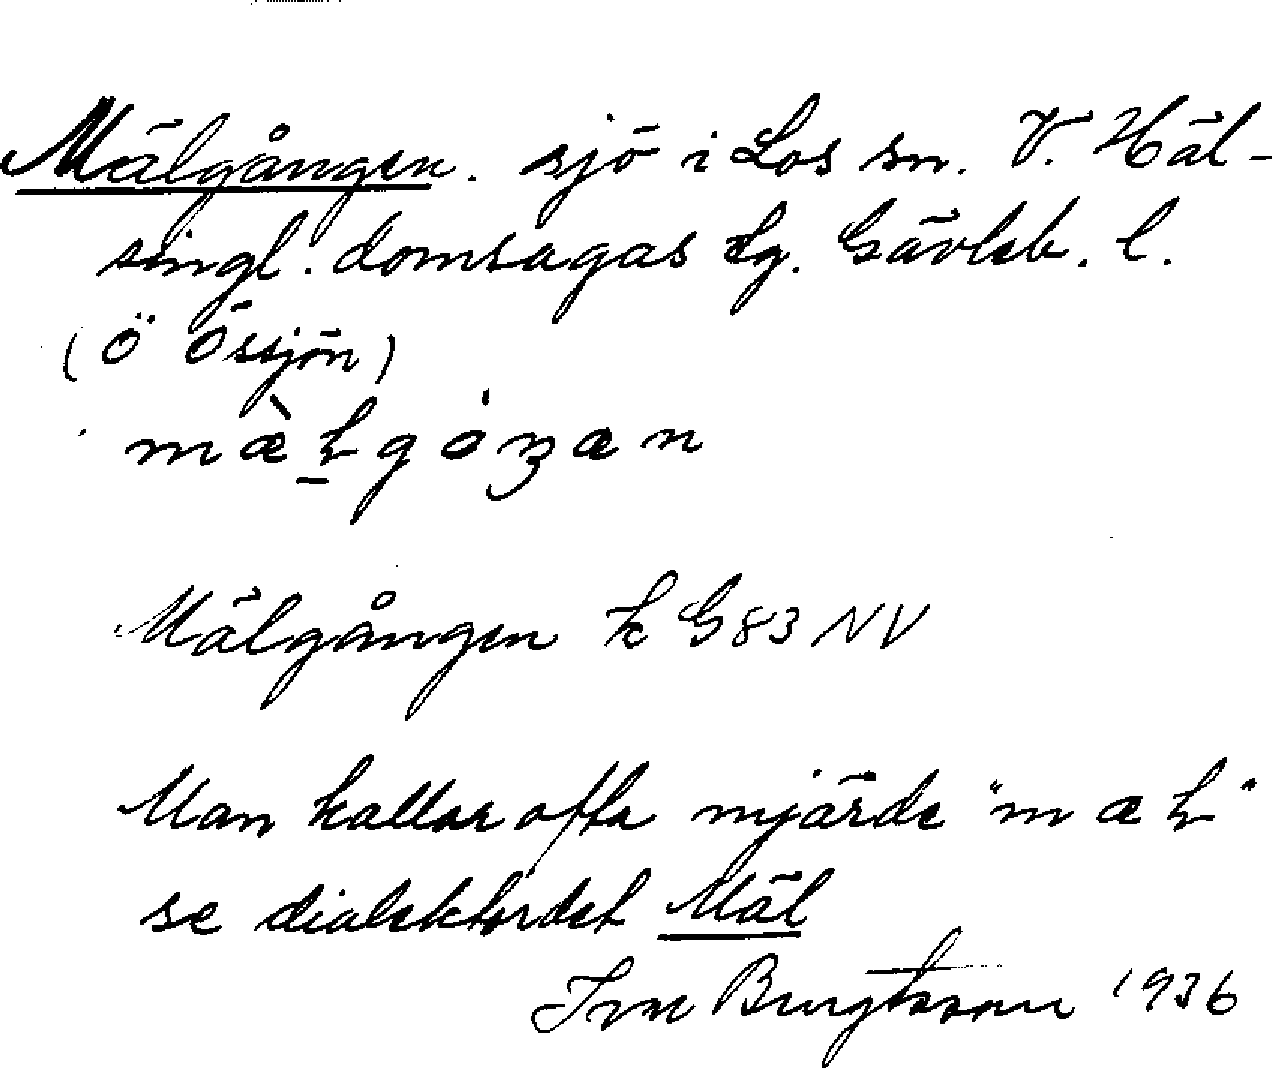 Mälgången. sjö i Los sn. V. Häl-
singl. domsagas tg. Gävleb. l.
(Ö Össjön)
Mälgången k G83 NV
Man kallar ofta mjärde "mæɫ"
se dialektordet Mäl
Bengtsson 1936